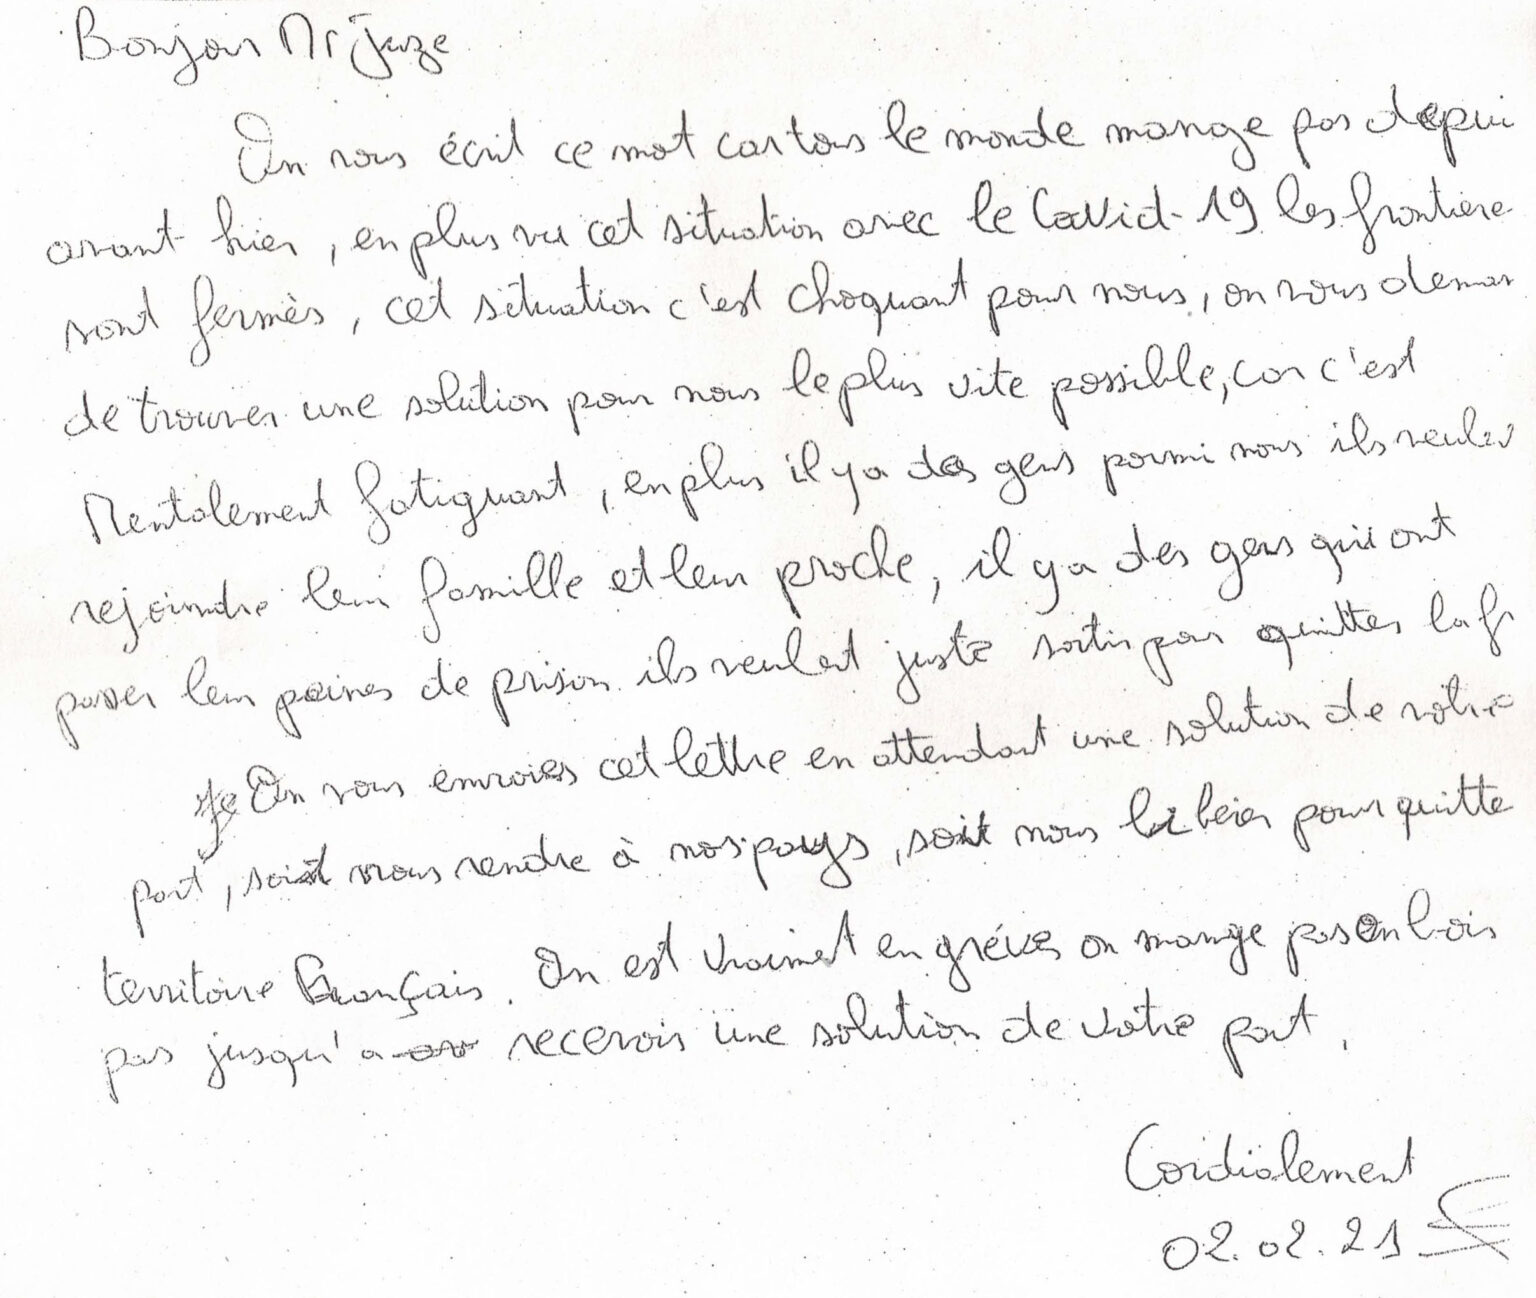 Bonjour Mr juze
On vous écrit ce mot car tous le monde mange pas depui
avant hier, en plus vu cet situation avec le Covid-19 les frontiere
sont fermès, cet situation c'est choquant pour nous, on vous deman
de trouver une solution pour nous le plus vite possible, car c'est
Mentalement fatiguant, en plus il y a des gens parmi nous ils veulev
rejoindre leur famille et leur proche, il y a des gens qui ont
passer leur peines de prison ils veulent juste sortir pour quitter la fr
On vous envoies cet lettre en attendant une solution de vôtre
part, soit nous rendre à nos pays, soit nous libérer pour quitte
territoire Français. On est vraiment en gréves on mange pas on bois
pas jusqu'a recevoir une solution de vôtre part.
Cordialement
02.02.21